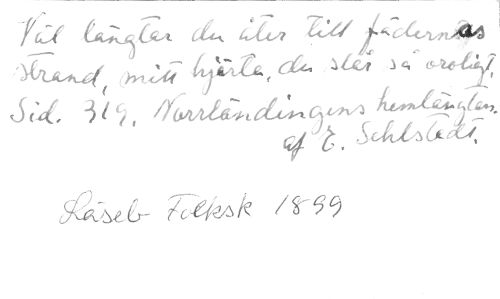 Väl längtar du åter till fädernas
strand, mitt hjärta, du slår så oroligt.
Sid. 319. Norrländingens hemlängtan.
af E. Sehlstedt.
Läseb Folksk 1899